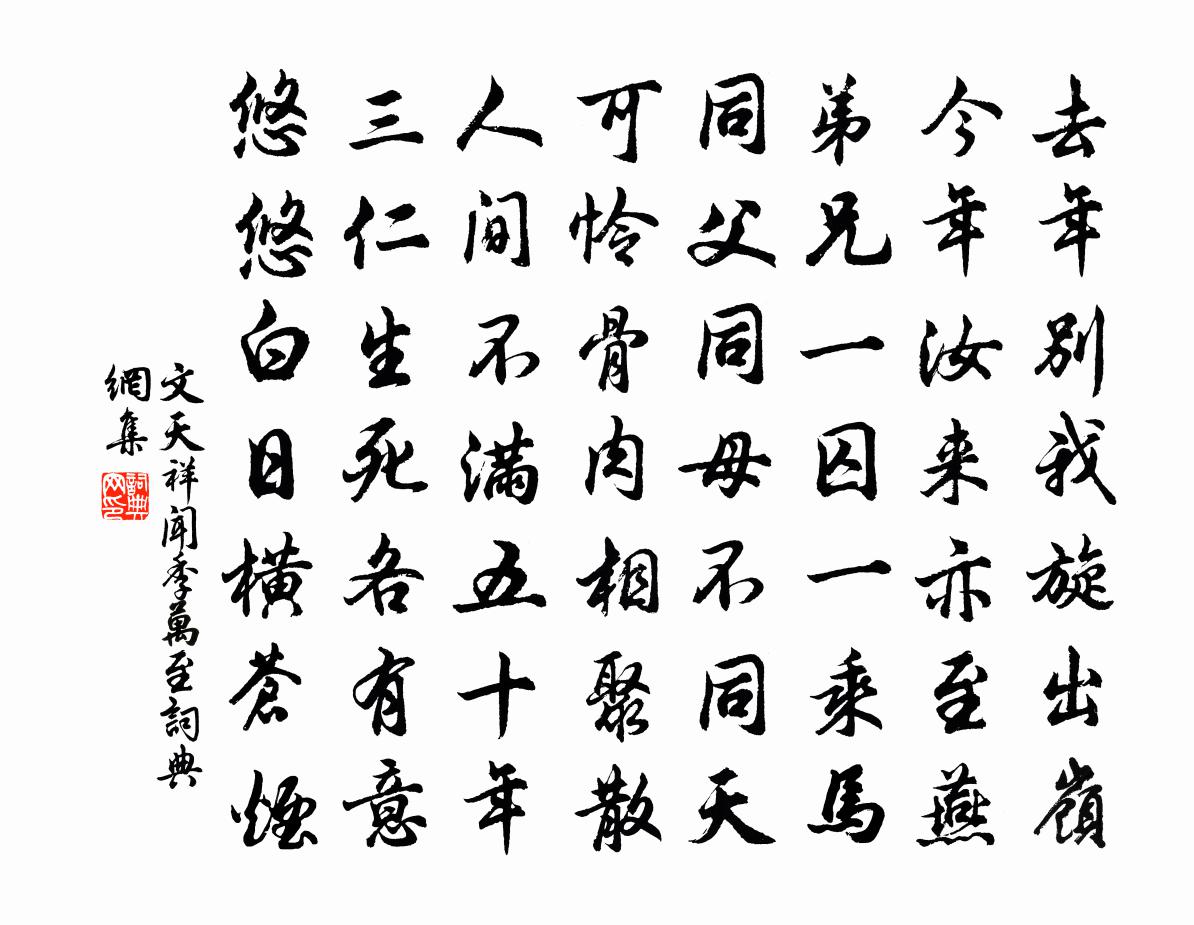 去年別我旋出嶺
今年汝来亦至燕
弟兄一囚一乘馬
同父同母不同天
可怜骨肉相聚散
人间不满五十年
三仁生死各有意
悠悠白日横蒼煙
文天祥闻季萬至詞典
網集
詞典
网印